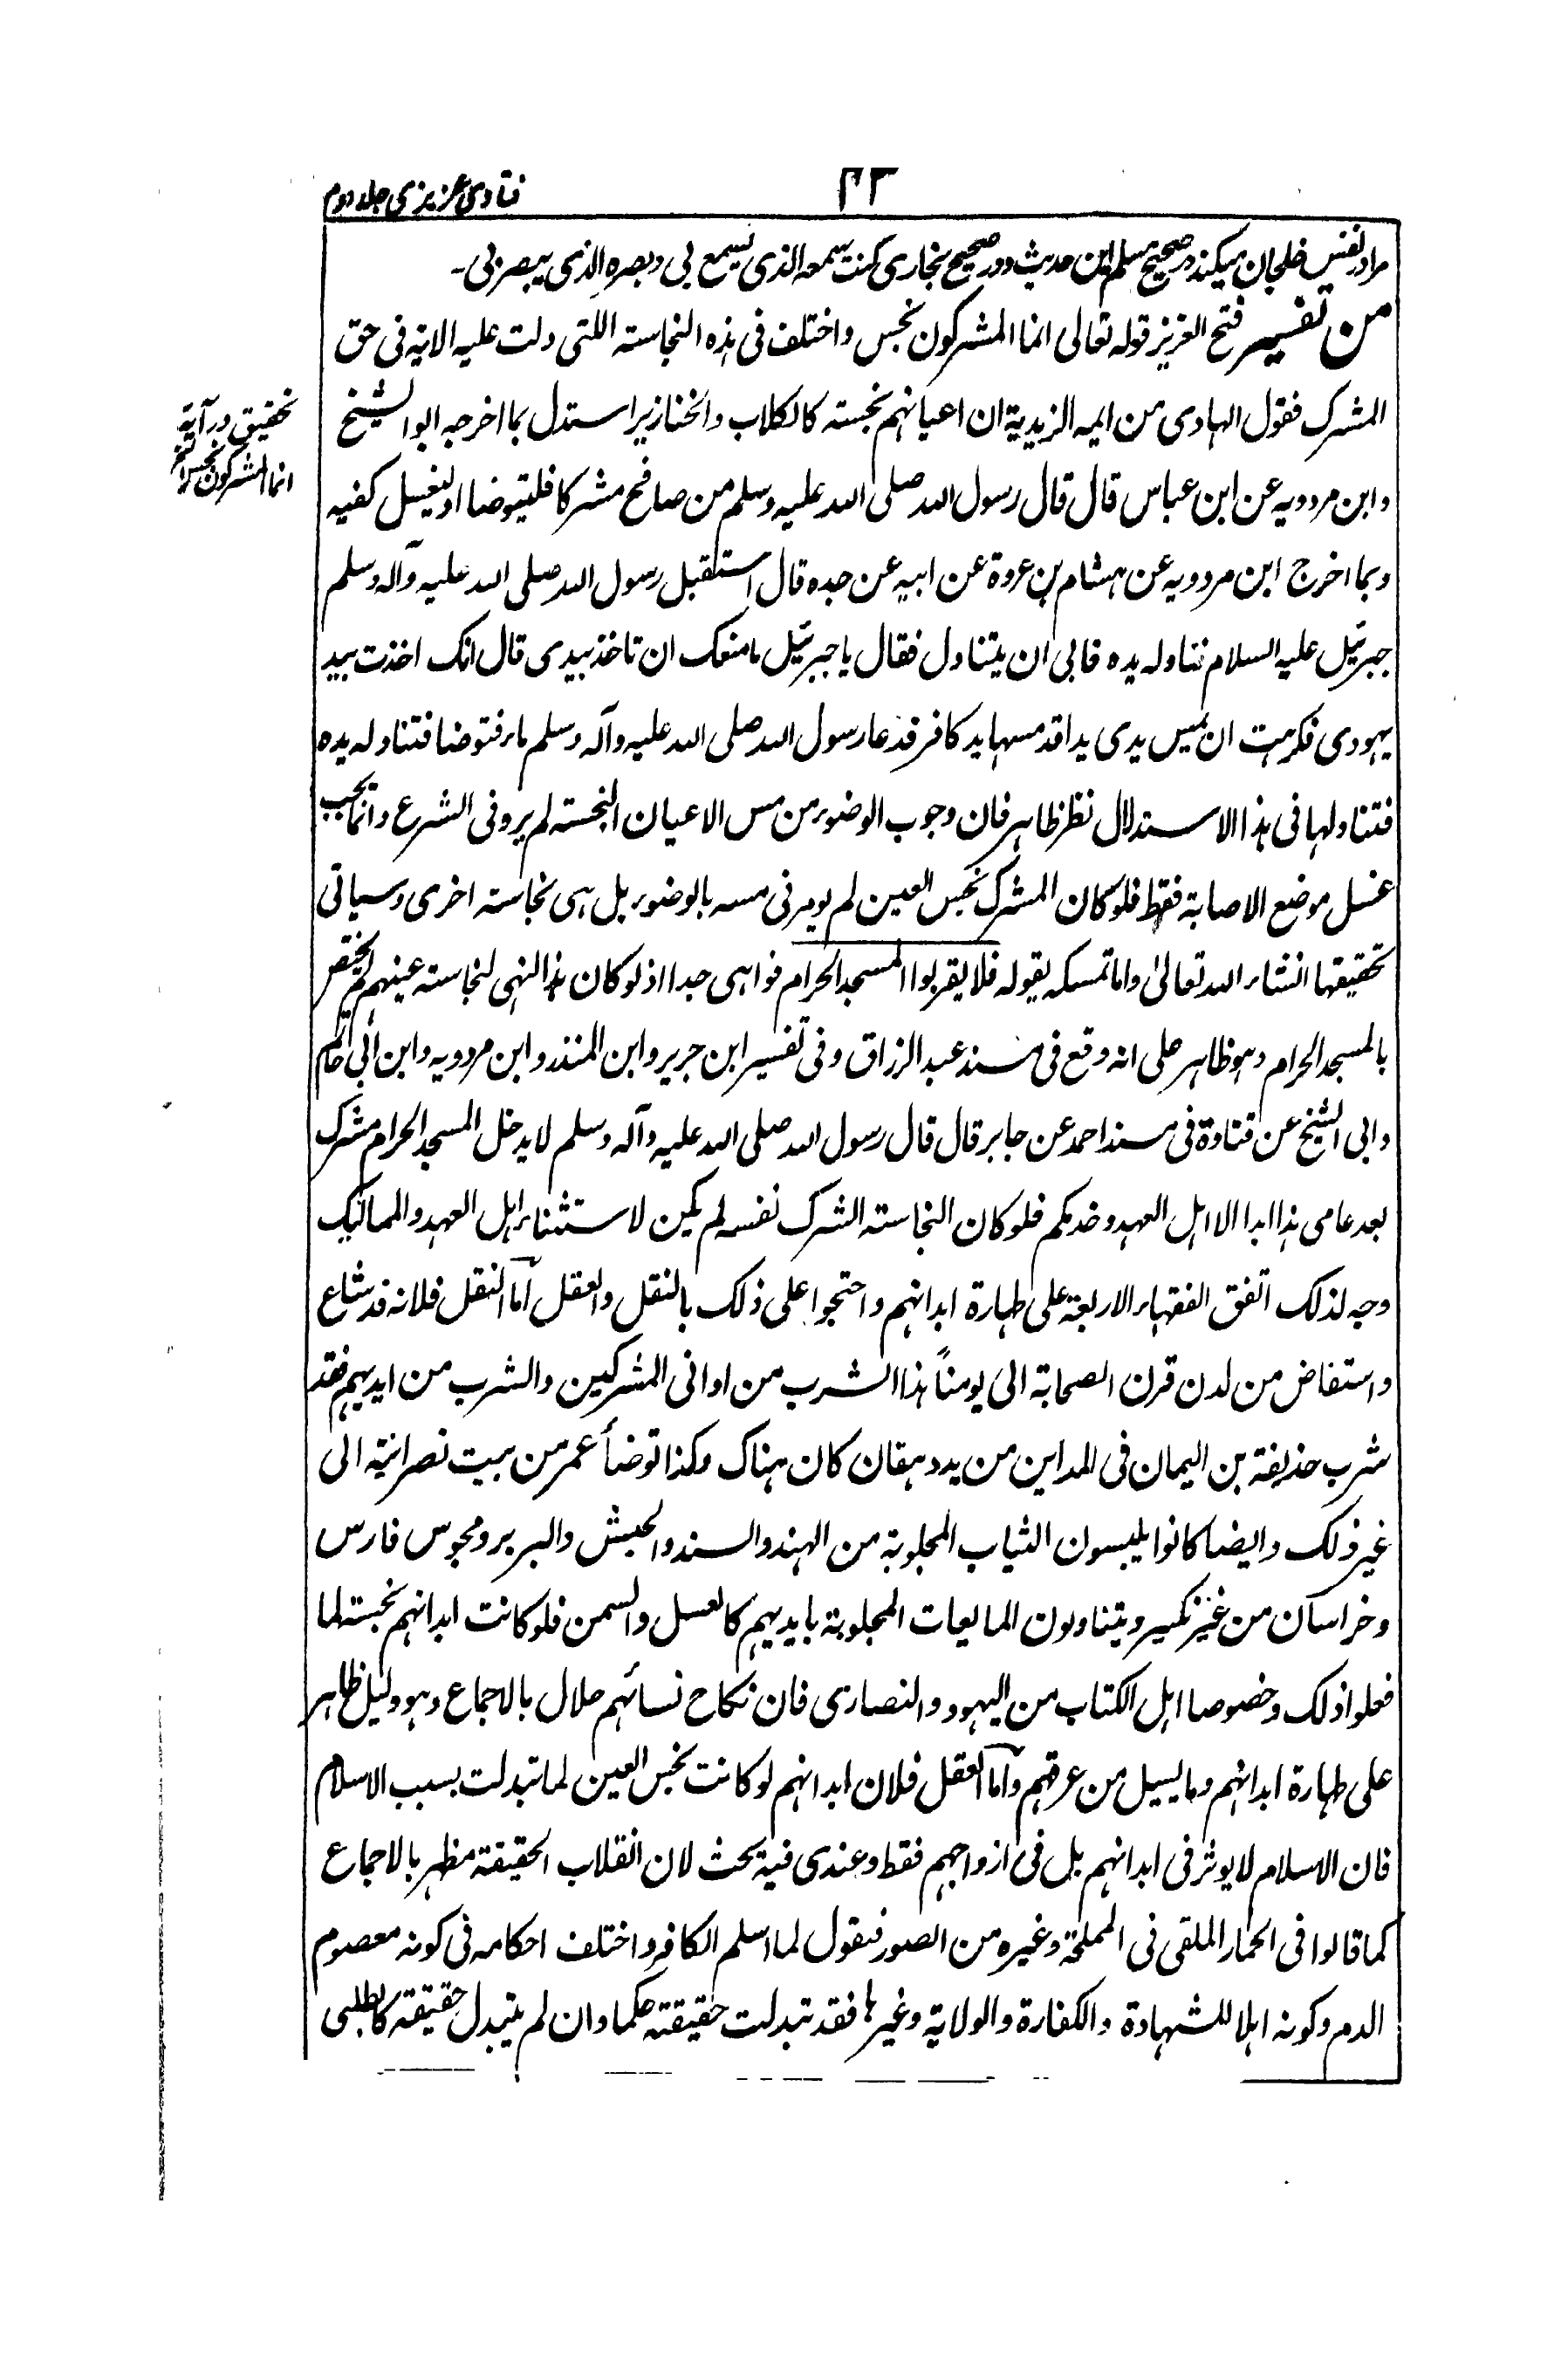 فتاوی عزیزی جلد دوم
۴۳
مراد نفس خلجان میکند در صحیح مسلم این حدیث و در صحیح بخاری کنت سمعه الذی یسمع بی وبصره الذی یبصر بی۔
من تفسیر فتح العزیز قوله تعالی انما المشرکون نجس واختلف فی هذه النجاسته اللتی دلت علیه الایة فی حق
المشرک فقول الهادی من ایمه الزیدیة ان اعیانهم نجسته کالکلاب والخنازیر استدل بما اخرجه ابوالشیخ
وابن مردویه عن ابن عباس قال قال رسول الله صلی الله علیه وسلم من صافح مشرکا فلیتوضا او لیغسل کفیه
وبما اخرج ابن مردویه عن هشام بن عروة عن ابیه عن جده قال استقبل رسول الله صلی الله علیه وآله وسلم
جبرئیل علیه السلام فناوله یده فابی ان یتناول فقال یا جبرئیل ما منعک ان تاخذ بیدی قال انک اخذت بید
یهودی فکرهت ان یمس یدی یدا قد مسها ید کافر فدعا رسول الله صلی الله علیه وآله وسلم بماء فتوضا فتناوله یده
فتناولها فی هذا الاستدلال نظر ظاهر فان وجوب الوضوء من مس الاعیان النجسته لم یرو فی الشرع وانما یجب
غسل موضع الاصابة فقط فلو کان المشرک نجس العین لم یومر فی مسه بالوضوء بل هی نجاسته اخری وسیاتی
تحقیقها انشاء الله تعالیٰ واما تمسکه بقوله فلا یقربوا المسجد الحرام فواهی جدا اذ لو کان هذا النهی لنجاسته عینهم لم یختص
بالمسجد الحرام وهو ظاهر علی انه وقع فی مسند عبد الرزاق وفی تفسیر ابن جریر وابن المنذر وابن مردویه وابن ابی حاتم
وابی الشیخ عن قتادة فی مسند احمد عن جابر قال قال رسول الله صلی الله علیه وآله وسلم لا یدخل المسجد الحرام مشرک
بعد عامی هذا ابدا الا اهل العهد وخدمکم فلو کان النجاسته الشرک نفسه لم یکن لاستثناء اهل العهد والممالیک
وجه لذلک اتفق الفقهاء الاربعة علی طهارة ابدانهم واحتجوا علی ذلک بالنقل والعقل اما النقل فلانه قد شاع
واستفاض من لدن قرن الصحابة الی یومناً هذا الشرب من اوانی المشرکین والشرب من ایدیهم فقد
شرب حذیفة بن الیمان فی المداین من ید دهقان کان هناک وکذا توضأ عمر من بیت نصرانیة الی
غیر ذلک وایضا کانوا یلبسون الثیاب المجلوبة من الهند والسند والحبش والبربر ومجوس فارس
وخراسان من غیر نکیر ویتناولون المایعات المجلوبة بایدیهم کالعسل والسمن فلو کانت ابدانهم نجسته لما
فعلوا ذلک وخصوصا اهل الکتاب من الیهود والنصاری فان نکاح نسائهم حلال بالاجماع وهو دلیل ظاهر
علی طهارة ابدانهم وما یسیل من عرقهم واما العقل فلان ابدانهم لو کانت نجس العین لما تبدلت بسبب الاسلام
فان الاسلام لا یوثر فی ابدانهم بل فی ازواجهم فقط وعندی فیه بحث لان انقلاب الحقیقة مطهر بالاجماع
کما قالوا فی الحمار الملقی فی المملحة وغیره من الصور فنقول لما اسلم الکافر واختلف احکامه فی کونه معصوم
الدم وکونه اهلا للشهادة والکفارة والولایة وغیرها فقد تبدلت حقیقته حکما وان لم یتبدل حقیقته کالطلبی
تحقیق در آیة
انما المشرکون نجس الخ